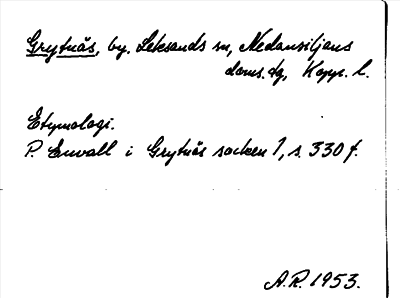 Grytnäs, by. Leksands sn, Nedansiljans
doms. dg, Kopp. l.
Etymologi.
P. Envall i Grytnäs socken 1, s. 330 f.
A.R. 1953.